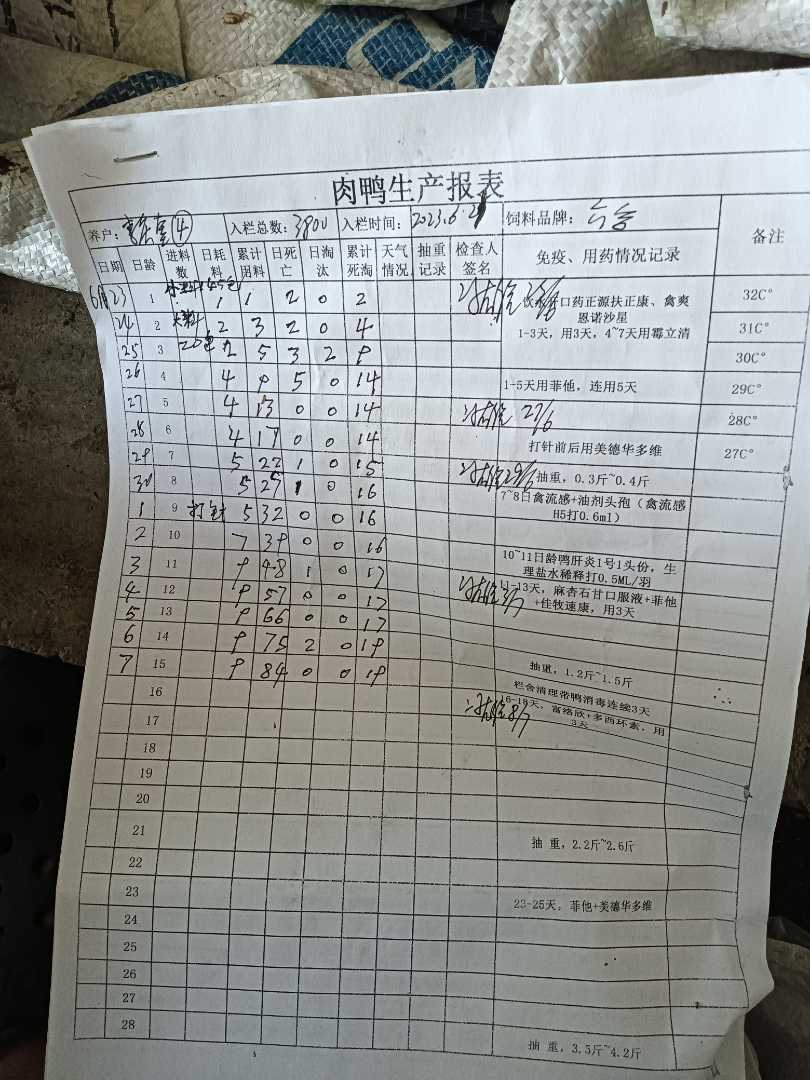 肉鸭生产报表
养户: ④ 入栏总数: 3800 入栏时间: 2023.6.2 饲料品牌: 备注
日期 日龄 进料数 日耗料 累计用料 日死亡 日淘汰 累计死淘 天气情况 抽重记录 检查人签名 免疫、用药情况记录
6月23 1 45包 1 1 2 0 2 饮水开口药正源扶正康、禽爽 32C°
恩诺沙星
24 2 大料 2 3 2 0 4 1-3天，用3天，4~7天用霉立清 31C°
25 3 20包 2 5 3 2 9 30C°
26 4 4 9 5 0 14 1-5天用菲他，连用5天 29C°
27 5 4 13 0 0 14 27/6 28C°
28 6 4 17 0 0 14 打针前后用美德华多维 27C°
29 7 5 22 1 0 15 29/6 抽重，0.3斤~0.4斤
30 8 5 27 1 0 16 7~8日禽流感+油剂头孢（禽流感
H5打0.6ml）
1 9 打针 5 32 0 0 16
2 10 7 39 0 0 16 10~11日龄鸭肝炎1号1头份，生
理盐水稀释打0.5ML/羽
3 11 9 48 1 0 17
4 12 9 57 0 0 17 11-13天，麻杏石甘口服液+菲他
+佳牧速康，用3天
5 13 9 66 0 0 17
6 14 9 75 2 0 19 抽重，1.2斤~1.5斤
7 15 9 84 0 0 19 栏舍清理带鸭消毒连续3天
16 16-18天，富络欣+多西环素，用
3天
17 8/7
18
19
20
21 抽 重，2.2斤~2.6斤
22
23 23-25天，菲他+美德华多维
24
25
26
27
28 抽 重，3.5斤~4.2斤